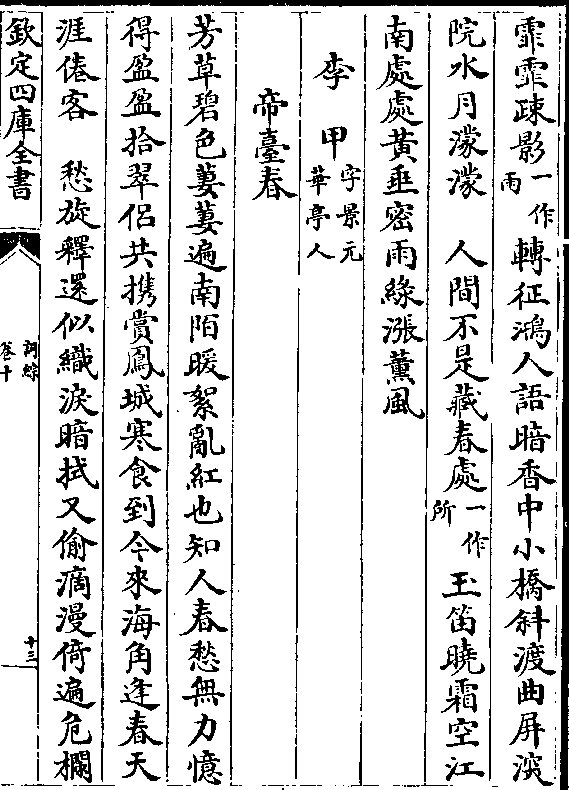 霏霏疎影一作雨轉征鴻人語暗香中小橋斜渡曲屏深
院水月濛濛　人間不是藏春處一作所玉笛曉霜空江
南處處黃垂密雨綠漲薰風
李甲字景元華亭人
帝臺春
芳草碧色萋萋遍南陌暖絮亂紅也知人春愁無力憶
得盈盈拾翠侶共攜賞鳳城寒食到今來海角逢春天
涯倦客　愁旋釋還似織淚暗拭又偷滴漫倚遍危欄
欽定四庫全書
詞綜
卷十
十三